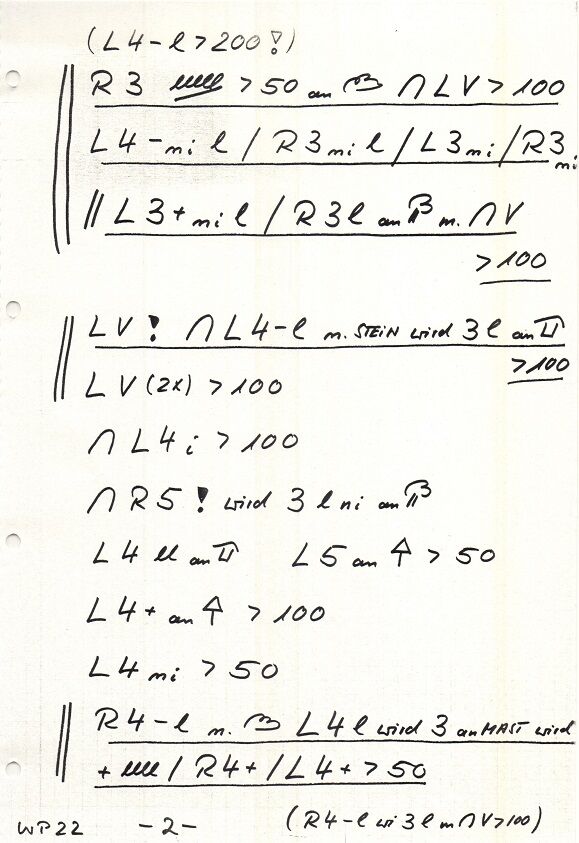 (L4-l>200!)
R3 llll >50 an ∩ LV>100
L4-ni l / R3 ni l / L3 ni / R3 ni
L3+ ni l / R3l an m. ∩V
>100
LV! ∩ L4-l m. STEIN wird 3l an
>100
LV(2x) >100
∩ L4i >100
∩ R5! wird 3 l ni an
L4 ll an L5 an ↑ >50
L4+ an ↑ >100
L4 ni >50
R4-l m. L4l wird 3 an MAST wird
+ llll / R4+ / L4+ >50
WP22 -2- (R4-l wi 3l m ∩V>100)